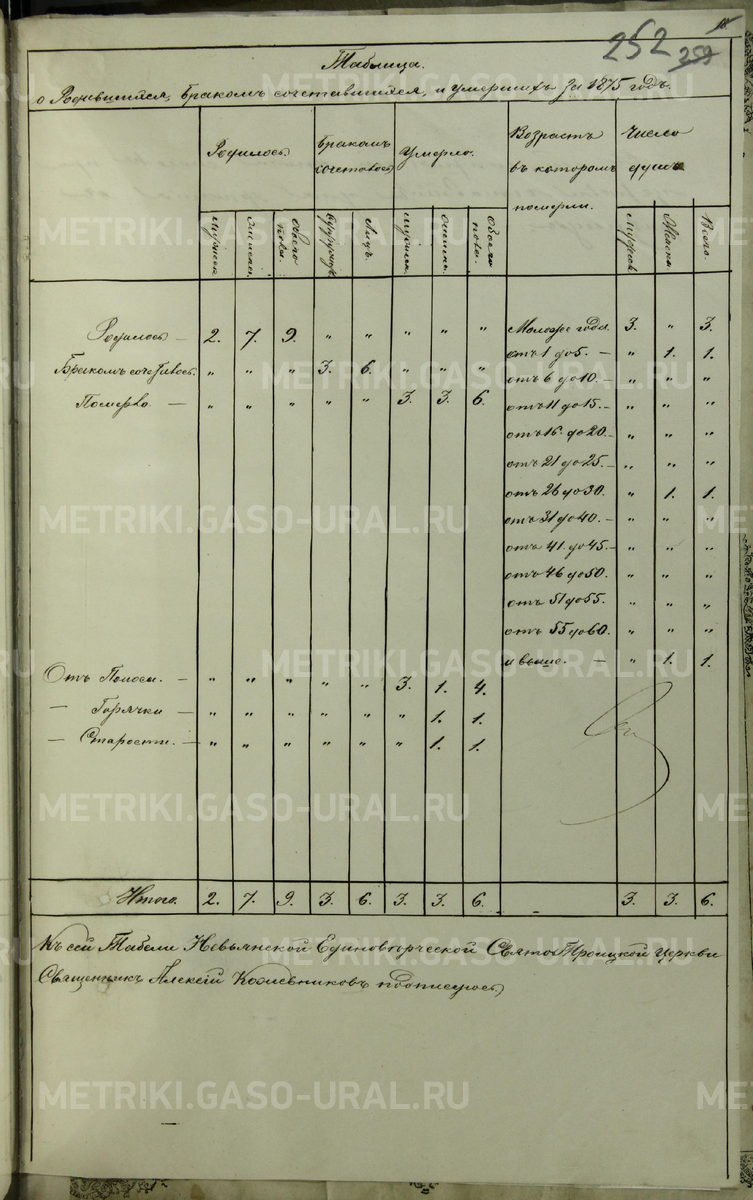 252
259
Таблица.
о Родившихся, бракомъ сочетавшихся, и умершихъ за 1875 годъ.
Родилось. Бракомъ сочеталось Умерло. Возрастъ въ которомъ померли. Число душъ
мужеск женска. обоего пола. супруж. Лицъ. мужска женска. обоего пола. Мужеск. Женск. Всего.
Родилось — 2. 7. 9. " " " " " Моложе года. 3. " 3.
отъ 1 до 5. — " 1. 1.
Бракомъ сочеталось. " " " 3. 6. " " "
отъ 6 до 10. — " " "
Померло. — " " " " " 3. 3. 6.
отъ 11 до 15. — " " "
отъ 16 до 20. — " " "
отъ 21 до 25. — " " "
отъ 26 до 30. " 1. 1.
отъ 31 до 40. — " " "
отъ 41 до 45. — " " "
отъ 46 до 50. " " "
отъ 51 до 55. " " "
отъ 55 до 60. " " "
и выше. — " 1. 1.
Отъ Поноса. — " " " " " 3. 1. 4.
— Горячки — " " " " " " 1. 1.
— Старости. — " " " " " " 1. 1.
Итого. 2. 7. 9. 3. 6. 3. 3. 6. 3. 3. 6.
Къ сей Табели Невьянской Единоверческой Свято Троицкой церкви
Священникъ Алексей Кожевниковъ подписуюсь
METRIKI.GASO-URAL.RU